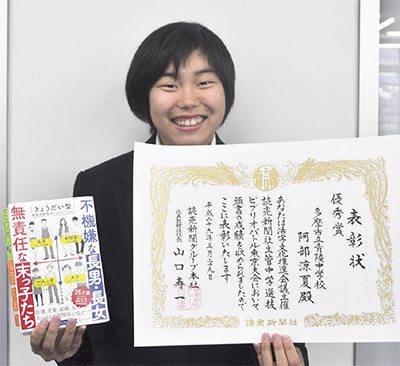 表彰状
優秀賞
多摩市立青陵中学校
阿部涼夏殿
あなたは活字文化推進会議主催
読売新聞社主管中学選抜
ビブリオバトル東京大会において
頭書の成績を収められましたので
ここに表彰いたします
平成二十九年三月二十九日
読売新聞グループ本社
山口寿一
読売新聞社
不機嫌な長男・長女
無責任な末っ子たち
「きょうだい型」
長子
中間子
末っ子
一人っ子